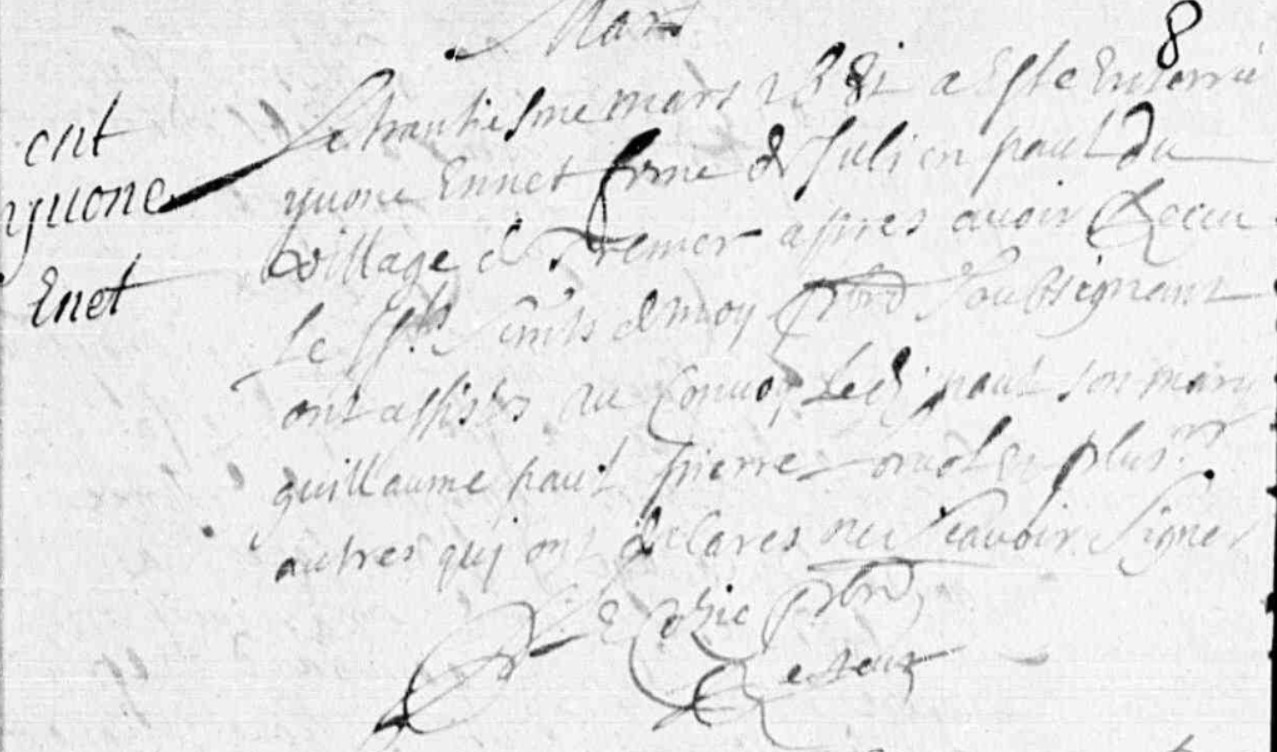 Mars
8
ent
yuone
Enet
Le trantiesme mars 1681 a Este Enterré
yuone Ennet feme de Julien paul du
village de Tremer apres avoir Receu
Le ssts. de moy pbre Soubsignant
ont assistes au Convoy Led. paul son mary
guillaume paul pierre et plusrs
autres qui ont declares ne scavoir signer
pbre